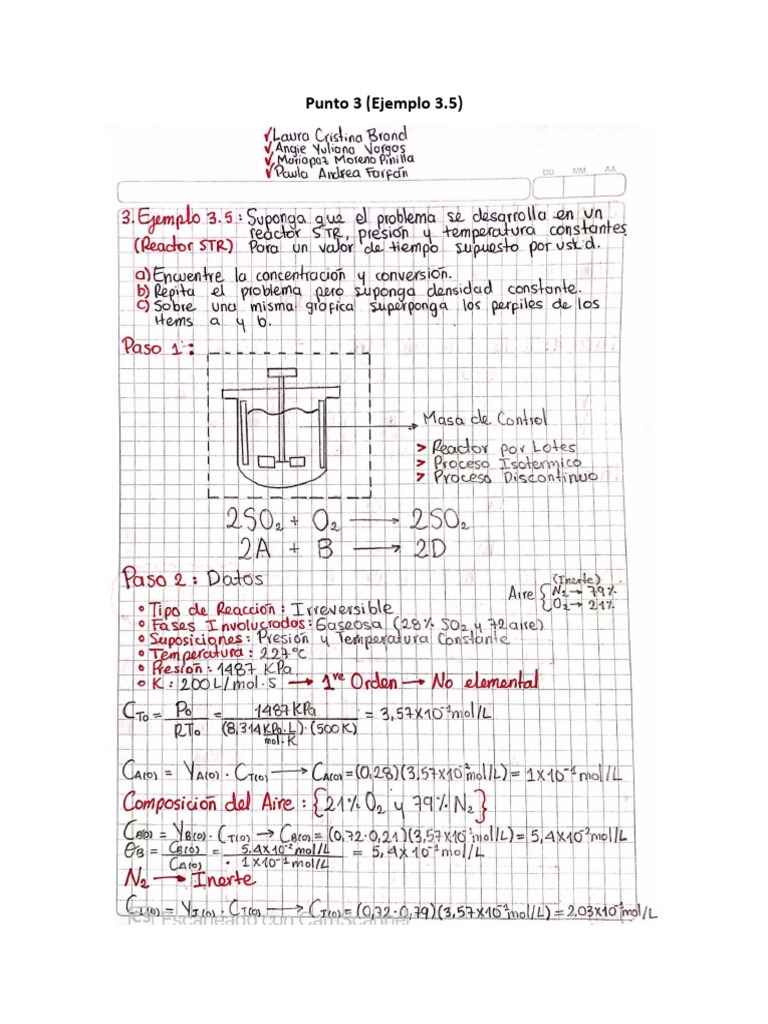 Punto 3 (Ejemplo 3.5)
✓Laura Cristina Brand
✓Angie Yuliana Vargas
✓Mariapaz Moreno Pinilla
✓Paula Andrea Farfán
DD MM AA
3. Ejemplo 3.5: Suponga que el problema se desarrolla en un
reactor STR, presión y temperatura constantes
(Reactor STR) Para un valor de tiempo supuesto por ust.d.
a) Encuentre la concentración y conversión.
b) Repita el problema pero suponga densidad constante.
c) Sobre una misma gráfica superponga los perfiles de los
Items a y b.
Paso 1:
Masa de Control
> Reactor por Lotes
> Proceso Isotermico
> Proceso Discontinuo
2SO₂ + O₂ → 2SO₂
2A + B → 2D
Paso 2: Datos
Aire { (Inerte) N₂ → 79%
O₂ → 21%
• Tipo de Reacción: Irreversible
• Fases Involucradas: Gaseosa (28% SO₂ y 72 aire)
• Suposiciones: Presión y Temperatura Constante
• Temperatura: 227°C
• Presión: 1487 KPa
• K: 200 L/mol·s → 1ʳᵉ Orden → No elemental
C_To = Po / RTo = 1487KPa / (8,314 KPa·L / mol·K)·(500K) = 3,57x10⁻¹mol/L
C_A(0) = Y_A(0) · C_T(0) → C_A(0) = (0,28)(3,57x10⁻¹mol/L) = 1x10⁻¹mol/L
Composición del Aire: {21% O₂ y 79% N₂}
C_B(0) = Y_B(0) · C_T(0) → C_B(0) = (0,72·0,21)(3,57x10⁻¹mol/L) = 5,4x10⁻²mol/L
θ_B = C_B(0) / C_A(0) = 5,4x10⁻²mol/L / 1x10⁻¹mol/L = 5,4x10⁻¹mol/L
N₂ → Inerte
C_I(0) = Y_I(0) · C_T(0) → C_I(0) = (0,72·0,79)(3,57x10⁻¹mol/L) = 2,03x10⁻¹mol/L
CS Escaneado con CamScanner